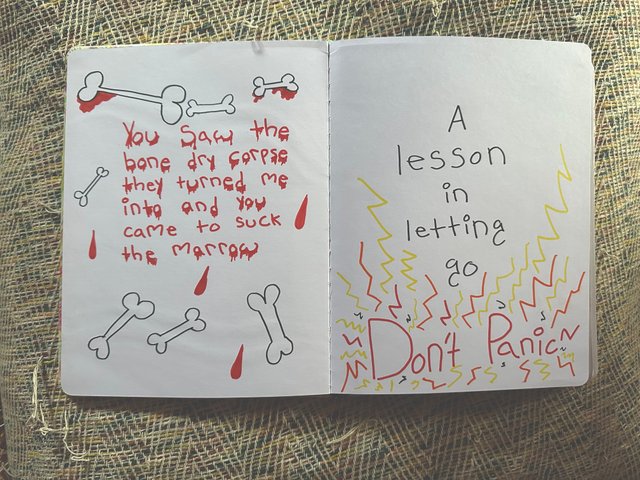 You Saw the
bone dry corpse
they turned me
into and you
came to suck
the marrow
A
lesson
in
letting
go
Don't Panic